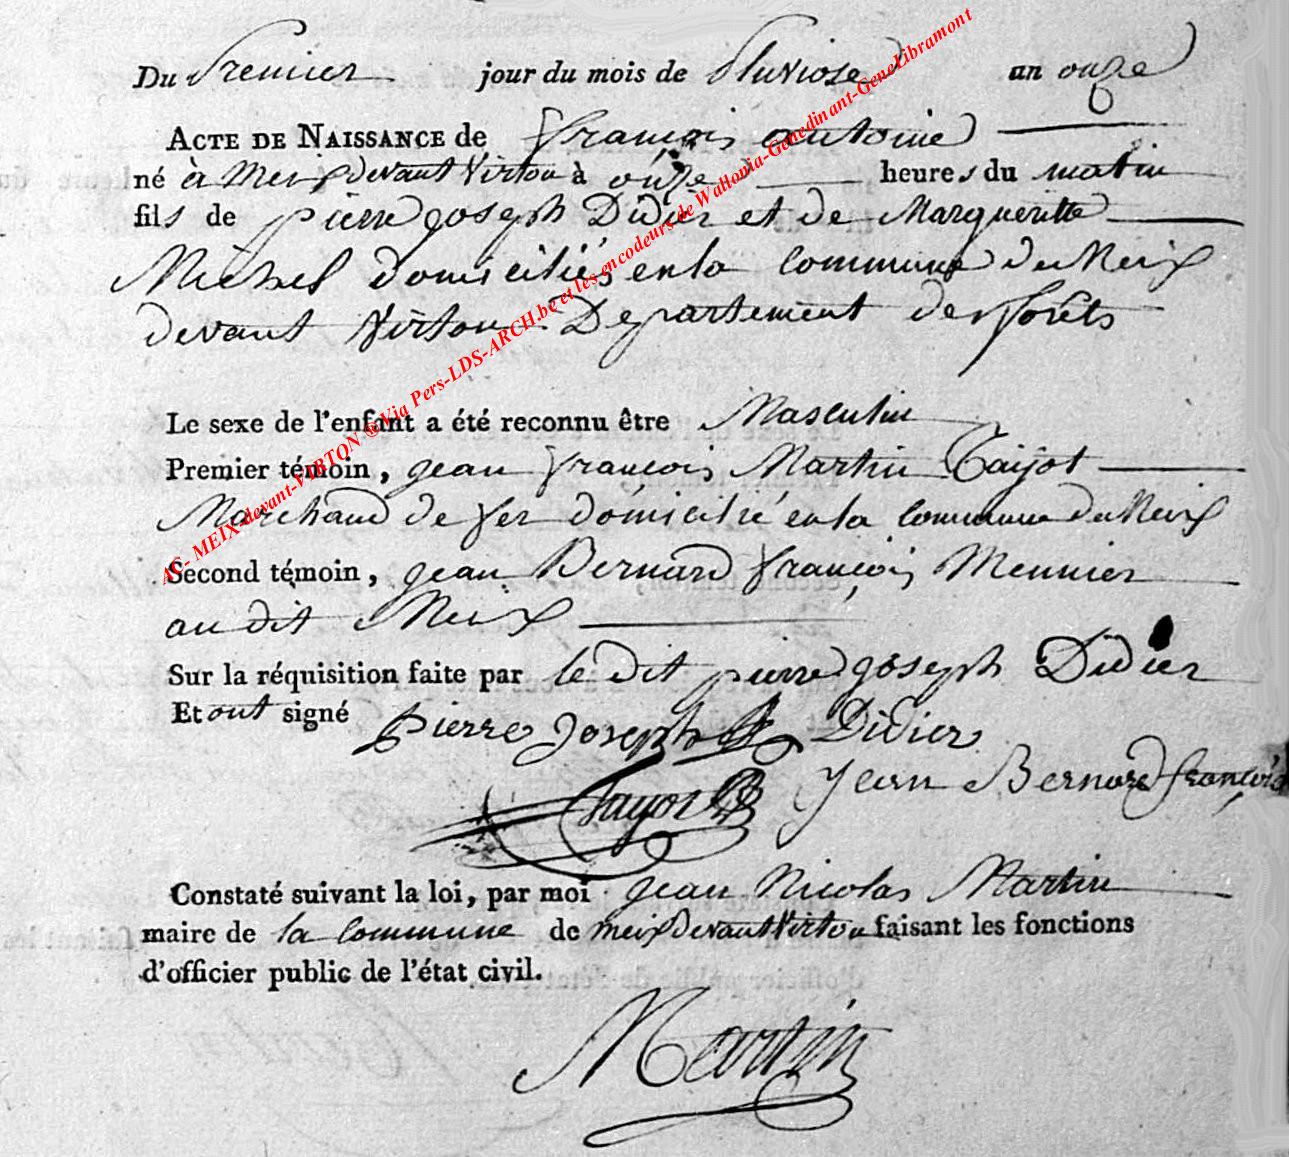 Du Premier jour du mois de Pluviose an onze
ACTE DE NAISSANCE de françois antoine
né à Meix devant Virton à onze heures du matin
fils de pierre joseph Didier et de Margueritte
Michel domiciliés en la commune de Meix
devant Virton Departement des forêts
Le sexe de l'enfant a été reconnu être Masculin
Premier témoin, jean françois Martin Tayot
Marchand de fer domicilié en la commune de Meix
Second témoin, jean Bernard françois Meunier
au dit Meix
Sur la réquisition faite par le dit pierre joseph Didier
Et ont signé
pierre Joseph Didier
Jean Bernard françois
Tayot
Constaté suivant la loi, par moi jean Nicolas Martin
maire de la commune de meix devant Virton faisant les fonctions
d'officier public de l'état civil.
Martin
AC- MEIX-devant-VIRTON ® Via Pers-LDS-ARCH.be et les encodeurs de Wallonia-Genedinant-GeneLibramont